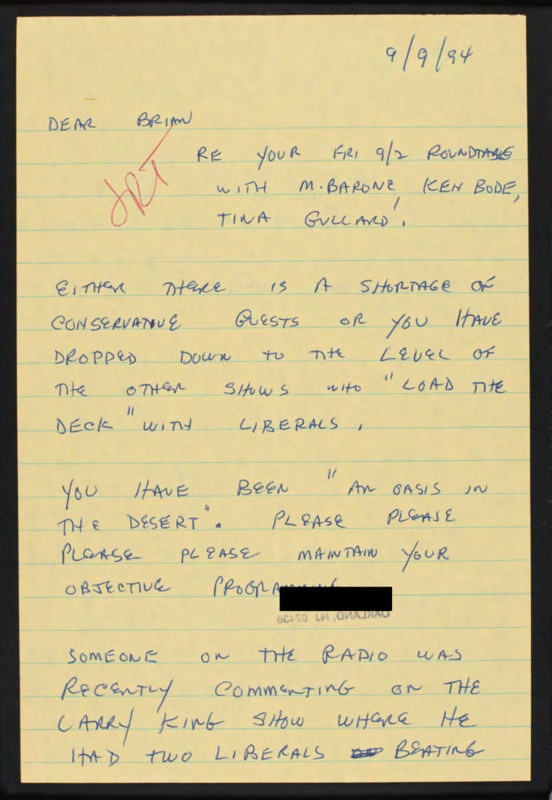 9/9/94
DEAR BRIAN
JRT
RE YOUR FRI 9/2 ROUNDTABLE
WITH M. BARONE KEN BODE,
TINA GULLARD!.
EITHER THERE IS A SHORTAGE OF
CONSERVATIVE GUESTS OR YOU HAVE
DROPPED DOWN TO THE LEVEL OF
THE OTHER SHOWS WHO "LOAD THE
DECK" WITH LIBERALS.
YOU HAVE BEEN "AN OASIS IN
THE DESERT". PLEASE PLEASE
PLEASE PLEASE MAINTAIN YOUR
OBJECTIVE PROGRAMMING
OAKLAND, NJ 07436
SOMEONE ON THE RADIO WAS
RECENTLY COMMENTING ON THE
LARRY KING SHOW WHERE HE
HAD TWO LIBERALS BEATING